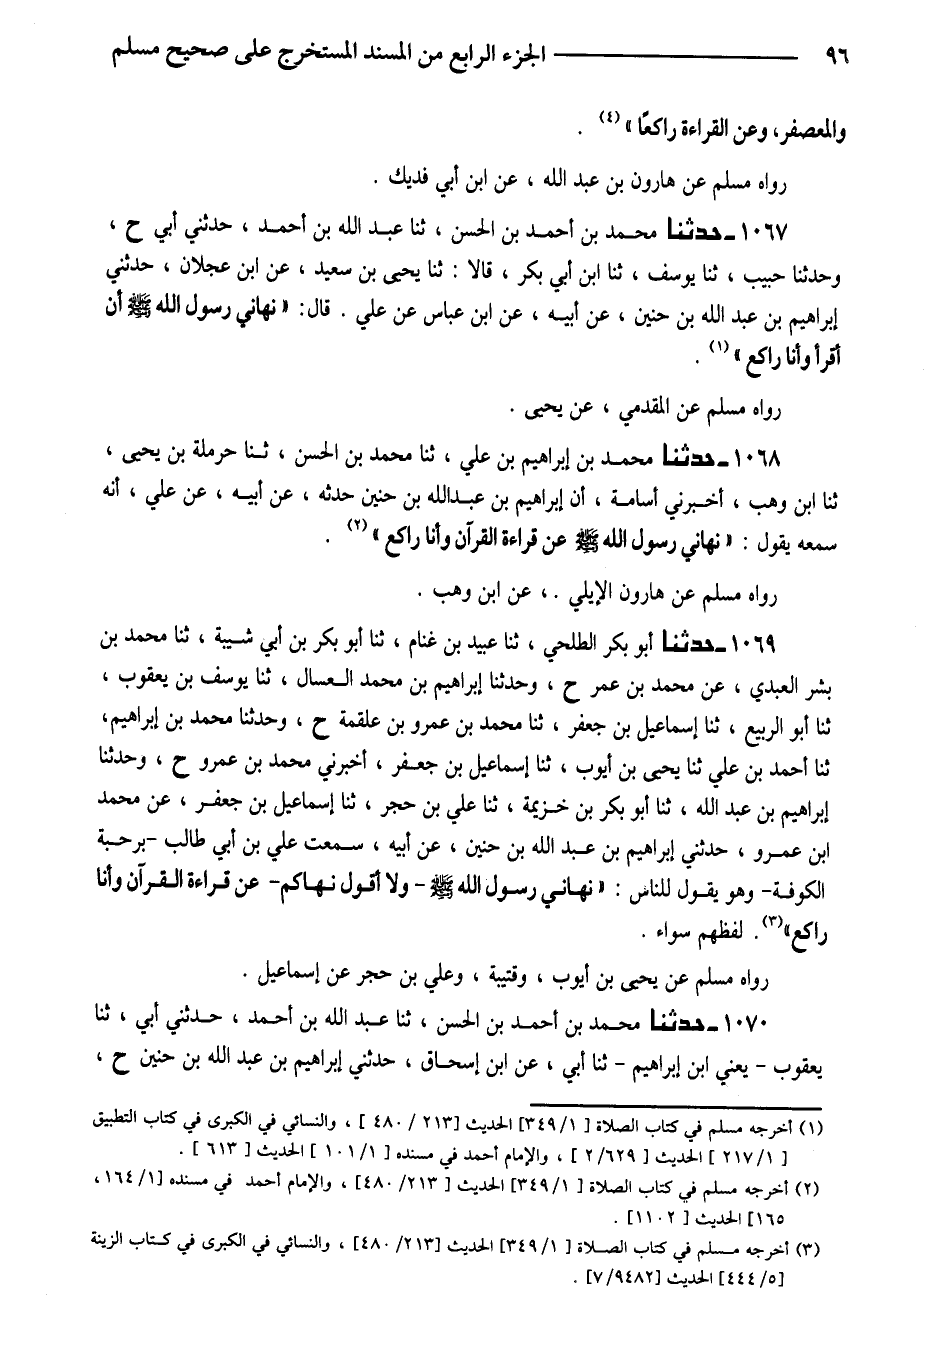 ٩٦ ـــــــــــــــــ الجزء الرابع من المسند المستخرج على صحيح مسلم
والمعصفر، وعن القراءة راكعًا » (٤) .
رواه مسلم عن هارون بن عبد الله ، عن ابن أبي فديك .
١٠٦٧ ـ حدثنا محمد بن أحمد بن الحسن ، ثنا عبد الله بن أحمد ، حدثني أبي ح ،
وحدثنا حبيب ، ثنا يوسف ، ثنا ابن أبي بكر ، قالا : ثنا يحيى بن سعيد ، عن ابن عجلان ، حدثني
إبراهيم بن عبد الله بن حنين ، عن أبيه ، عن ابن عباس عن علي . قال: « نهاني رسول الله ﷺ أن
أقرأ وأنا راكع » (١) .
رواه مسلم عن المقدمي ، عن يحيى .
١٠٦٨ ـ حدثنا محمد بن إبراهيم بن علي ، ثنا محمد بن الحسن ، ثنا حرملة بن يحيى ،
ثنا ابن وهب ، أخبرني أسامة ، أن إبراهيم بن عبدالله بن حنين حدثه ، عن أبيه ، عن علي ، أنه
سمعه يقول : « نهاني رسول الله ﷺ عن قراءة القرآن وأنا راكع » (٢) .
رواه مسلم عن هارون الإيلي .، عن ابن وهب .
١٠٦٩ ـ حدثنا أبو بكر الطلحي ، ثنا عبيد بن غنام ، ثنا أبو بكر بن أبي شيبة ، ثنا محمد بن
بشر العبدي ، عن محمد بن عمر ح ، وحدثنا إبراهيم بن محمد العسال ، ثنا يوسف بن يعقوب ،
ثنا أبو الربيع ، ثنا إسماعيل بن جعفر ، ثنا محمد بن عمرو بن علقمة ح ، وحدثنا محمد بن إبراهيم،
ثنا أحمد بن علي ثنا يحيى بن أيوب ، ثنا إسماعيل بن جعفر ، أخبرني محمد بن عمرو ح ، وحدثنا
إبراهيم بن عبد الله ، ثنا أبو بكر بن خزيمة ، ثنا علي بن حجر ، ثنا إسماعيل بن جعفر ، عن محمد
ابن عمرو ، حدثني إبراهيم بن عبد الله بن حنين ، عن أبيه ، سمعت علي بن أبي طالب -برحبة
الكوفة- وهو يقول للناس : « نهاني رسول الله ﷺ - ولا أقول نهاكم- عن قراءة القرآن وأنا
راكع»(٣). لفظهم سواء .
رواه مسلم عن يحيى بن أيوب ، وقتيبة ، وعلي بن حجر عن إسماعيل .
١٠٧٠ ـ حدثنا محمد بن أحمد بن الحسن ، ثنا عبد الله بن أحمد ، حدثني أبي ، ثنا
يعقوب - يعني ابن إبراهيم - ثنا أبي ، عن ابن إسحاق ، حدثني إبراهيم بن عبد الله بن حنين ح ،
(١) أخرجه مسلم في كتاب الصلاة [ ٣٤٩/١] الحديث [٢١٣ / ٤٨٠ ] ، والنسائي في الكبرى في كتاب التطبيق
[ ٢١٧/١ ] الحديث [ ٢/٦٢٩ ] ، والإمام أحمد في مسنده [ ١٠١/١ ] الحديث [ ٦١٣ ] .
(٢) أخرجه مسلم في كتاب الصلاة [ ٣٤٩/١] الحديث [ ٢١٣ /٤٨٠] ، والإمام أحمد في مسنده [١٦٤/١ ،
١٦٥] الحديث [ ١١٠٢] .
(٣) أخرجه مسلم في كتاب الصلاة [ ٣٤٩/١] الحديث [٢١٣ /٤٨٠] ، والنسائي في الكبرى في كتاب الزينة
[٤٤٤/٥] الحديث [٧/٩٤٨٢] .